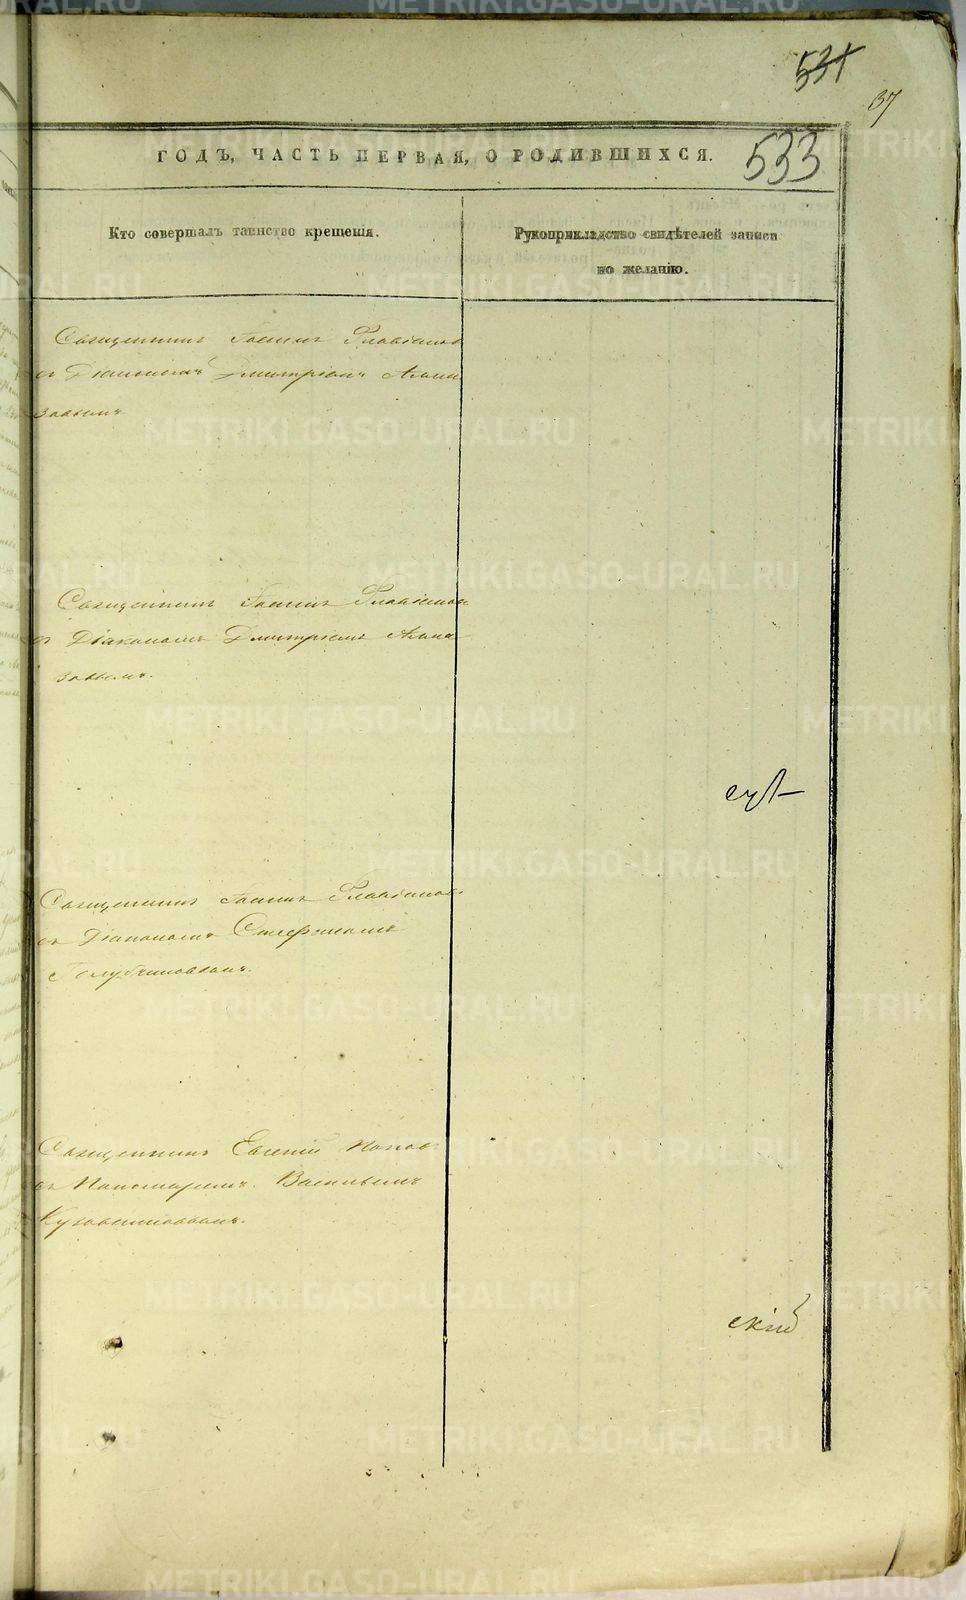 531
37
ГОДЪ, ЧАСТЬ ПЕРВАЯ, О РОДИВШИХСЯ.
533
Кто совершалъ таинство крещенія.
Рукоприкладство свидѣтелей записи
по желанію.
Священникъ Іоаннъ Флавіановъ
съ Діакономъ Дмитріемъ Алма
зовымъ
Священникъ Іоаннъ Флавіановъ
съ Діакономъ Дмитріемъ Алма
зовымъ.
Священникъ Іоаннъ Флавіановъ
съ Діакономъ Стефаномъ
Голубчиковымъ.
Священникъ Евгеній Поповъ
съ Пономаремъ Васильемъ
скій
METRIKI.GASO-URAL.RU